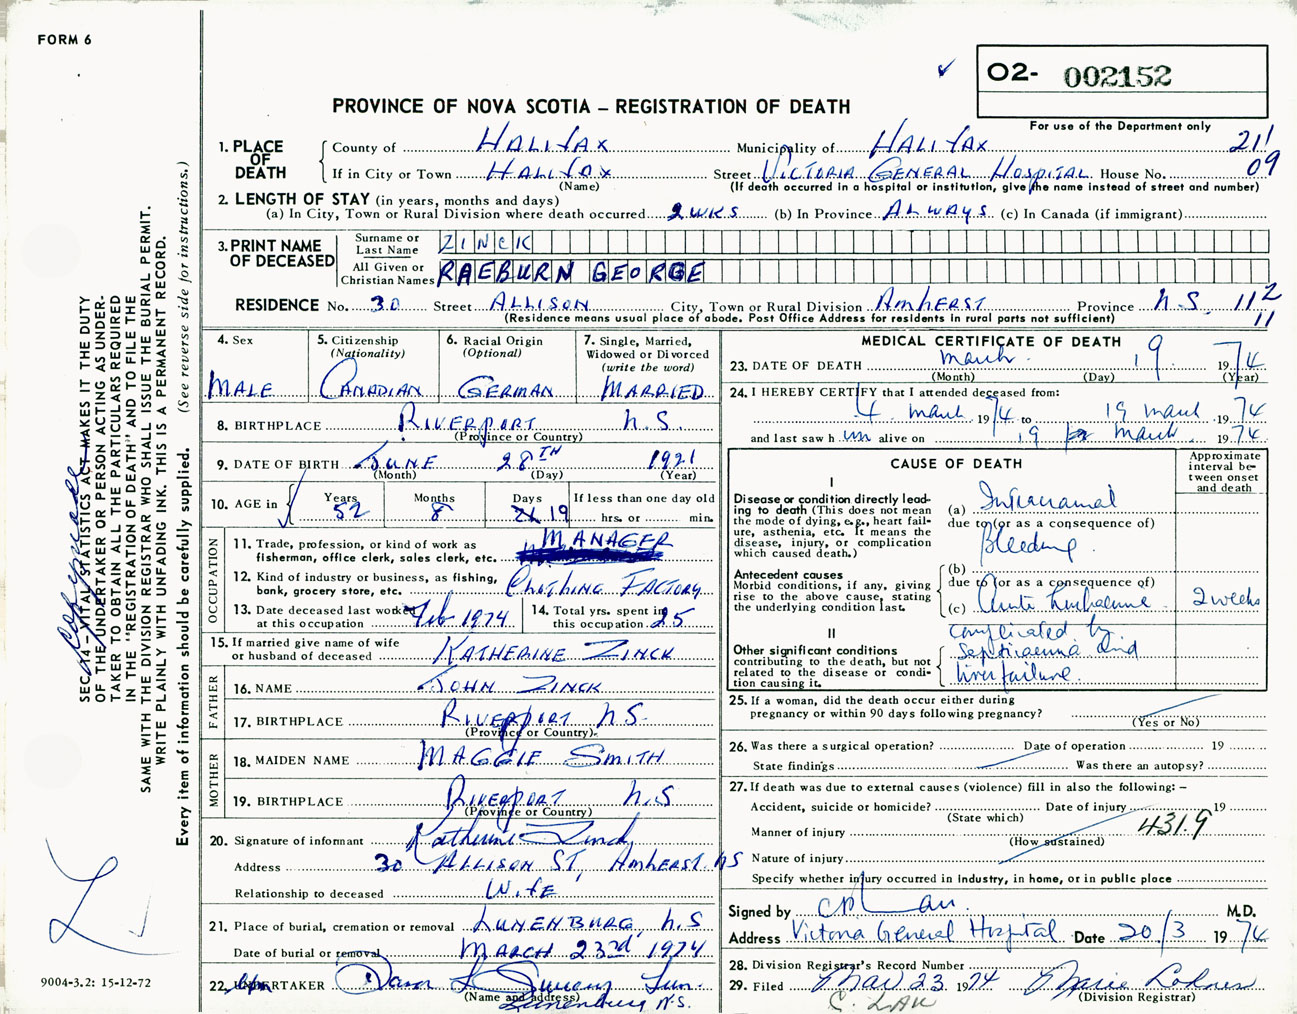 FORM 6
O2- 002152
PROVINCE OF NOVA SCOTIA – REGISTRATION OF DEATH
For use of the Department only
1. PLACE OF DEATH
County of HALIFAX Municipality of HALIFAX 211
If in City or Town HALIFAX Street VICTORIA GENERAL HOSPITAL House No. 09
(Name) (If death occurred in a hospital or institution, give the name instead of street and number)
2. LENGTH OF STAY (in years, months and days)
(a) In City, Town or Rural Division where death occurred 2 WKS (b) In Province ALWAYS (c) In Canada (if immigrant)
3. PRINT NAME OF DECEASED
Surname or Last Name ZINCK
All Given or Christian Names RAEBURN GEORGE
RESIDENCE No. 30 Street ALLISON City, Town or Rural Division AMHERST Province N.S. 112
(Residence means usual place of abode. Post Office Address for residents in rural parts not sufficient) 11
4. Sex
MALE
5. Citizenship
(Nationality)
CANADIAN
6. Racial Origin
(Optional)
GERMAN
7. Single, Married,
Widowed or Divorced
(write the word)
MARRIED
8. BIRTHPLACE RIVERPORT N.S.
(Province or Country)
9. DATE OF BIRTH JUNE 28TH 1921
(Month) (Day) (Year)
10. AGE in
Years 52
Months 8
Days 19
If less than one day old
hrs. or min.
OCCUPATION
11. Trade, profession, or kind of work as MANAGER
fisherman, office clerk, sales clerk, etc.
12. Kind of industry or business, as fishing, CLOTHING FACTORY
bank, grocery store, etc.
13. Date deceased last worked
at this occupation Feb 1974
14. Total yrs. spent in
this occupation 25
15. If married give name of wife
or husband of deceased KATHERINE ZINCK
FATHER
16. NAME JOHN ZINCK
17. BIRTHPLACE RIVERPORT N.S.
(Province or Country)
MOTHER
18. MAIDEN NAME MAGGIE SMITH
19. BIRTHPLACE RIVERPORT N.S
(Province or Country)
20. Signature of informant Katherine Zinck
Address 30 ALLISON ST, AMHERST. NS
Relationship to deceased WIFE
21. Place of burial, cremation or removal LUNENBURG, N.S
Date of burial or removal MARCH 23rd 1974
22. UNDERTAKER
(Name and address)
Lunenburg N.S.
MEDICAL CERTIFICATE OF DEATH
23. DATE OF DEATH March 19 1974
(Month) (Day) (Year)
24. I HEREBY CERTIFY that I attended deceased from:
4 March 1974 to 19 March 1974
and last saw him alive on 19 March 1974
CAUSE OF DEATH
Approximate
interval be-
tween onset
and death
I
Disease or condition directly lead-
ing to death (This does not mean
the mode of dying, e.g., heart fail-
ure, asthenia, etc. It means the
disease, injury, or complication
which caused death.)
(a) Intracranial
due to (or as a consequence of)
Bleeding
Antecedent causes
Morbid conditions, if any, giving
rise to the above cause, stating
the underlying condition last.
(b)
due to (or as a consequence of)
(c) Acute Leukaemia 2 weeks
II
Other significant conditions
contributing to the death, but not
related to the disease or condi-
tion causing it.
complicated by
septicaemia and
liver failure
25. If a woman, did the death occur either during
pregnancy or within 90 days following pregnancy?
(Yes or No)
26. Was there a surgical operation? Date of operation 19
State findings Was there an autopsy?
27. If death was due to external causes (violence) fill in also the following: –
Accident, suicide or homicide? Date of injury 19
(State which)
Manner of injury 431.9
(How sustained)
Nature of injury
Specify whether injury occurred in industry, in home, or in public place
Signed by M.D.
Address Victoria General Hospital Date 20/3 1974
28. Division Registrar's Record Number
29. Filed Mar 23 1974 Marie
(Division Registrar)
C. LAU
SEC. 14 – VITAL STATISTICS ACT MAKES IT THE DUTY
OF THE UNDERTAKER OR PERSON ACTING AS UNDER-
TAKER TO OBTAIN ALL THE PARTICULARS REQUIRED
IN THE "REGISTRATION OF DEATH" AND TO FILE THE
SAME WITH THE DIVISION REGISTRAR WHO SHALL ISSUE THE BURIAL PERMIT.
WRITE PLAINLY WITH UNFADING INK. THIS IS A PERMANENT RECORD.
Every item of information should be carefully supplied. (See reverse side for instructions.)
9004-3.2: 15-12-72